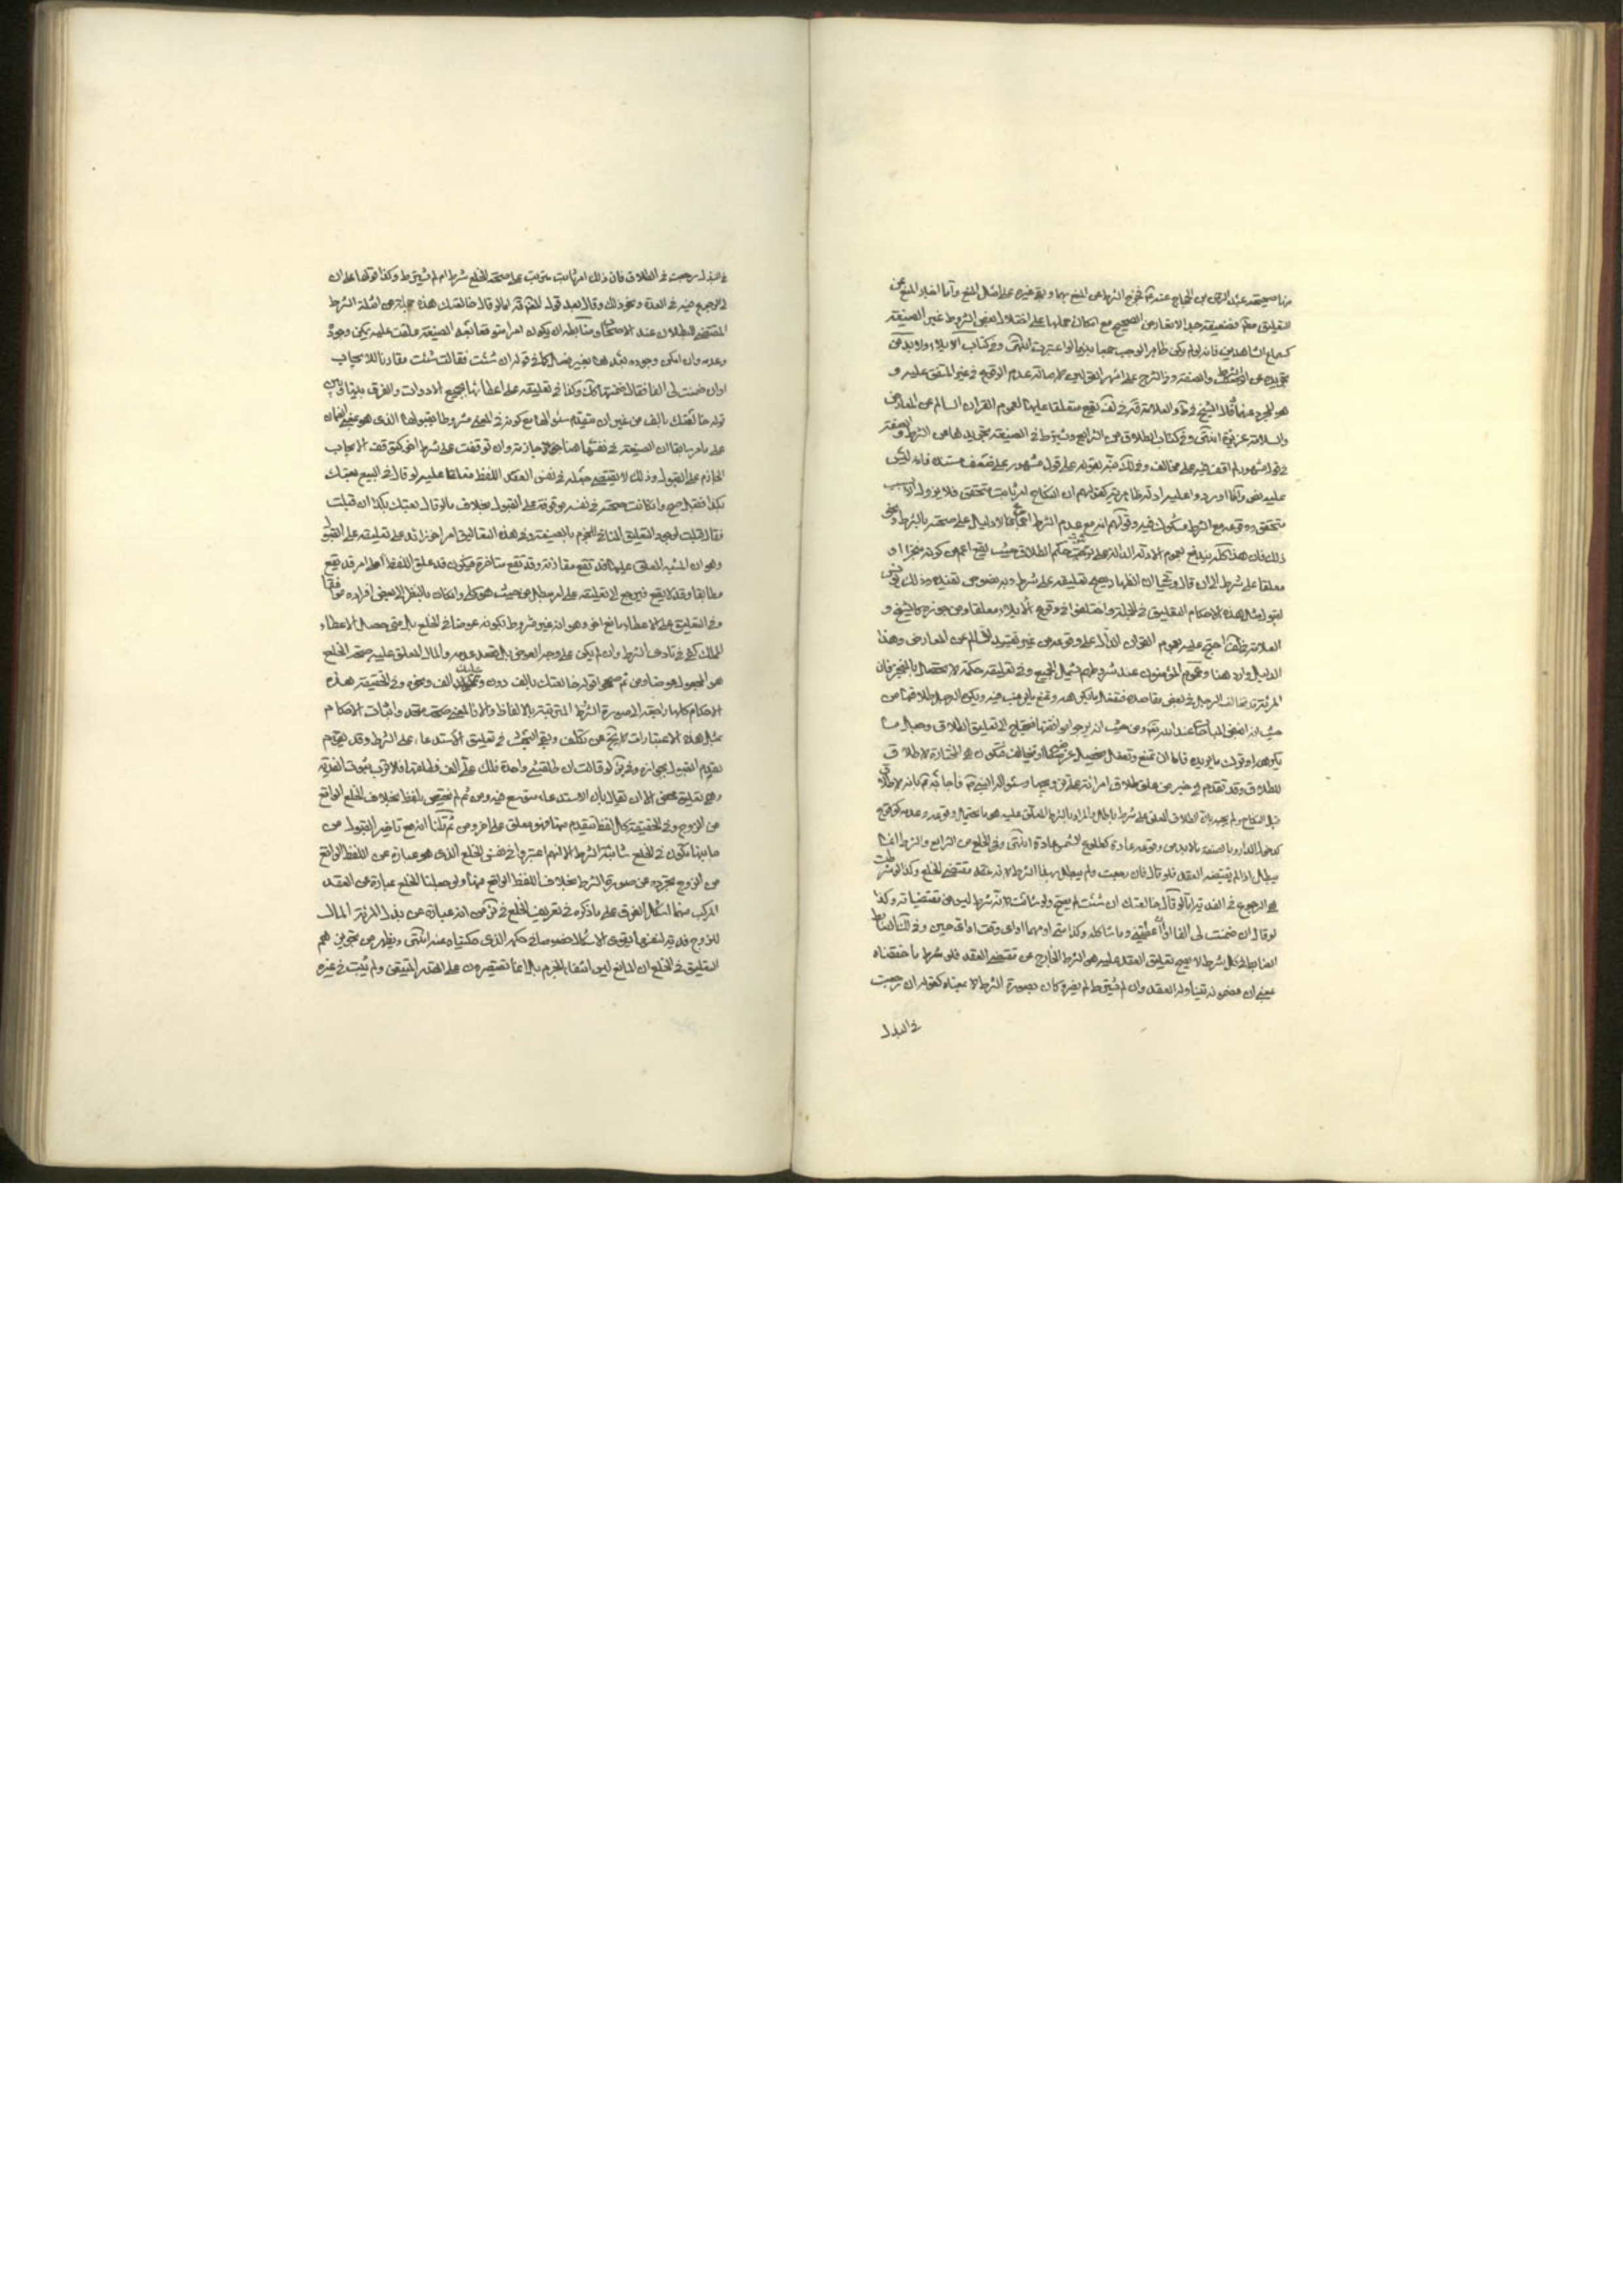 منها صحيحة عبد الرحمن بن الحجاج عند تم فخرج الشرط من المنع بها وبقي غيره على اصل المنع وأما اخبار المنع عن
التعليق معه فضعيفة جدا لا تعارض الصحيح مع امكان حملها على اختلال بعض الشروط غير الصيغة
كسماع الشاهدين فانه لو لم يكن ظاهرا لوجب جمعا بينها لو اعتبرت انتهى وفي كتاب الايلاء ولا بد من
تجريده عن الشرط والصفة وفي الشرح على اشهر القولين لاصالة عدم الوقوع في غير المتفق عليه و
هو المجرد عنهما خلافا للشيخ في ط والعلامة في لف يقع متعلقا عليهما لعموم القران السالم عن المعارض
والسلامة عزيزة انتهى وفي كتاب الطلاق من الشرايع ويشترط في الصيغة تجريدها من الشرط والصفة
في قول مشهور لم اقف فيه على مخالف وفي لك نبه بقوله على قول مشهور على ضعف مستنده فانه ليس
عليه نص وانما اوردوا عليه ادلة ظاهرية كقولهم ان النكاح امر ثابت متحقق فلا يزول الا بسبب
متحقق ووقوعه مع الشرط مشكوك فيه وقولهم انه مع عدم الشرط اجماعا ولا دليل على صحته بالشرط ونحو
ذلك فان هذا كله يندفع بعموم الادلة الدالة على ثبوت حكم الطلاق حيث يقع اعم من كونه منجزا او
معلقا على شرط الى ان قال وسيجئ ان الظهار يصح تعليقه على شرط وبه نصوص تفيد وذلك يونس
لقبول مثل هذه الاحكام التعليق في الجملة واختلفوا في وقوع الايلاء معلقا ومن جوزه كالشيخ و
العلامة في لف احتج عليه بعموم القران الدال على وقوعه من غير تقييد السالم عن المعارض وهذا
الدليل وارد هنا وعموم المؤمنون عند شروطهم يشمل الجميع وفي تعليقه حكمة لا تحصل بالمنجز فان
المرئة قد تخالف الرجل في بعض مقاصده فتفعل ما يكرهه وتمنع مما يرغب فيه ويكره الرجل طلاقها من
حيث انه ابغض المباحات عند الله تعالى ومن حيث انه يرجو موافقتها فيحتاج الى تعليق الطلاق وفعل ما
يكرهه او ترك ما يريده فاما ان تمنع وتفعل فيحصل غرضه او تخالف فتكون هي المختارة لاطلاق
للطلاق وقد تقدم في خبر من علق طلاق امرأته على تزويجها وسئواله النبي ص فأجابه ص بانه لا طلاق
قبل النكاح ولم يجبه بان الطلاق المعلق على شرط باطل والمراد بالشرط المعلق عليه هو ما يحتمل وقوعه وعدمه كوقوع
كدخول الدار وبالصفة ما لا بد من وقوعه عادة كطلوع الشمس عادة انتهى وفي الخلع من الشرايع والشرط انما
يبطل اذا لم يقتضه العقد فلو قال فان رجعت ولم يبطل بهذا الشرط لانه عقد مقتضى الخلع وكذا لو شرطت
هي الرجوع في الفدية اما لو قال خالعتك ان شئت لم يصح ولو شائت لانه شرط ليس من مقتضياته وكذا
لو قال ان ضمنت لي الفا او ان اعطيتني وما شاكله وكذا متى او مهما او اي وقت او اي حين وفي لك الضابط
الضابط في كل شرط لا يصح تعليق العقد عليه هو الشرط الخارج عن مقتضى العقد فلو شرط ما حققناه
بمعنى ان مضمونه يتناوله العقد وان لم يشترط لم يضره وكان بصورة الشرط لا بمعناه كقوله ان رجعت
في البذل
في البذل رجعت في الطلاق فان ذلك امر ثابت مترتب على صحة الخلع شرط ام لم يشترط وكذا قولها على ان
لي الرجوع فيه في العدة ونحو ذلك وقال بعد قول المص قده اما لو قال خالعتك هذه جملة من امثلة الشرط
المقتضي للبطلان عند الاصحاب وضابطه ان يكون امرا متوقعا بعد الصيغة علقت عليه يمكن وجوده
وعدمه وان امكن وجوده بعدها بغير فصل كما في قوله ان شئت فقالت شئت مقارنا للايجاب
او ان ضمنت لي الفا فقالت ضمنتها لك وكذا في تعليقه على اعطائها بجميع الادوات والفرق بينها وبين
قوله خالعتك بالف من غير ان يتقدم سئوالها مع كونه في المعنى مشروطا بقبولها الذي هو بمعنى الضمان
على ما مر سابقا ان الصيغة في نفسها هنا جازمة وان توقفت على شرط اخر كتوقف الايجاب
الجازم على القبول وذلك لا يقتضي جعله في نفس العقد اللفظ معلقا عليه لو قال في البيع بعتك
بكذا فقبل صح وان كانت صحته في نفسه موقوفة على القبول بخلاف ما لو قال بعتك بكذا ان قبلت
فقال قبلت لوجود التعليق المنافي للجزم بالصيغة وفي هذه التعاليق امر اخر زائد على تعليقه على القبول
وهو ان المشية المعلق عليها قد تقع مقارنة وقد تقع متأخرة فيكون قد علق اللفظ على امر قد يقع
مطابقا وقد لا يقع فيرجع الى تعليقه على امر مبطل من حيث هو كلي وان كان بالنظر الى بعض افراده موافقا
وفي التعليق على الاعطاء مانع اخر وهو انه غير شروط بكونه عوضا في الخلع بل متى حصل الاعطاء
الملك كفى في تادي الشرط وان لم يكن على وجه العوض بل بقصد عدمه والمال المعلق عليه صحة الخلع
هو المجعول عوضا ومن ثم صح قوله خالعتك بالف دون وعليك الف ونحوه وفي الحقيقة هذه
الاحكام كلها راجعة الى صورة الشرط المترتبة بالالفاظ والا فالمعنى متحد واثبات الاحكام
بمثل هذه الاعتبارات لا يخ من تكلف وبقي البحث في تعليق الاستدعاء على الشرط وقد تقدم
تقدم القبول بجوازه وفرق لو قالت ان طلقتني واحدة فلك علي الف فطلقها فالاقرب ثبوت الفدية
وهي تعليق محض الا ان يقال بأن الاستدعاء يتوسع فيه ومن ثم لم يختص بلفظ بخلاف الخلع الواقع
من الزوج وفي الحقيقة كل لفظ يتقدم منهما فهو معلق على اخر ومن ثم قلنا انه مع تاخير القبول من
جانبها يكون في الخلع شائبة الشرط الا انهم اعتبروا في نفس الخلع الذي هو عبارة عن اللفظ الواقع
من الزوج تجرده عن صورة الشرط بخلاف اللفظ الواقع منها ولو جعلنا الخلع عبارة عن العقد
المركب منهما اشكل الفرق على ما ذكره في تعريف الخلع في كره من انه عبارة عن بذل المرئة المال
للزوج فدية لنفسها يقوى الاشكال خصوصا في حكمه الذي حكيناه عنه انتهى ويظهر من تجويزهم
التعليق في الخلع ان المانع ليس انتفاء الجزم بل انما تقتصرون على القدر المتيقن ولم يثبت في غيره